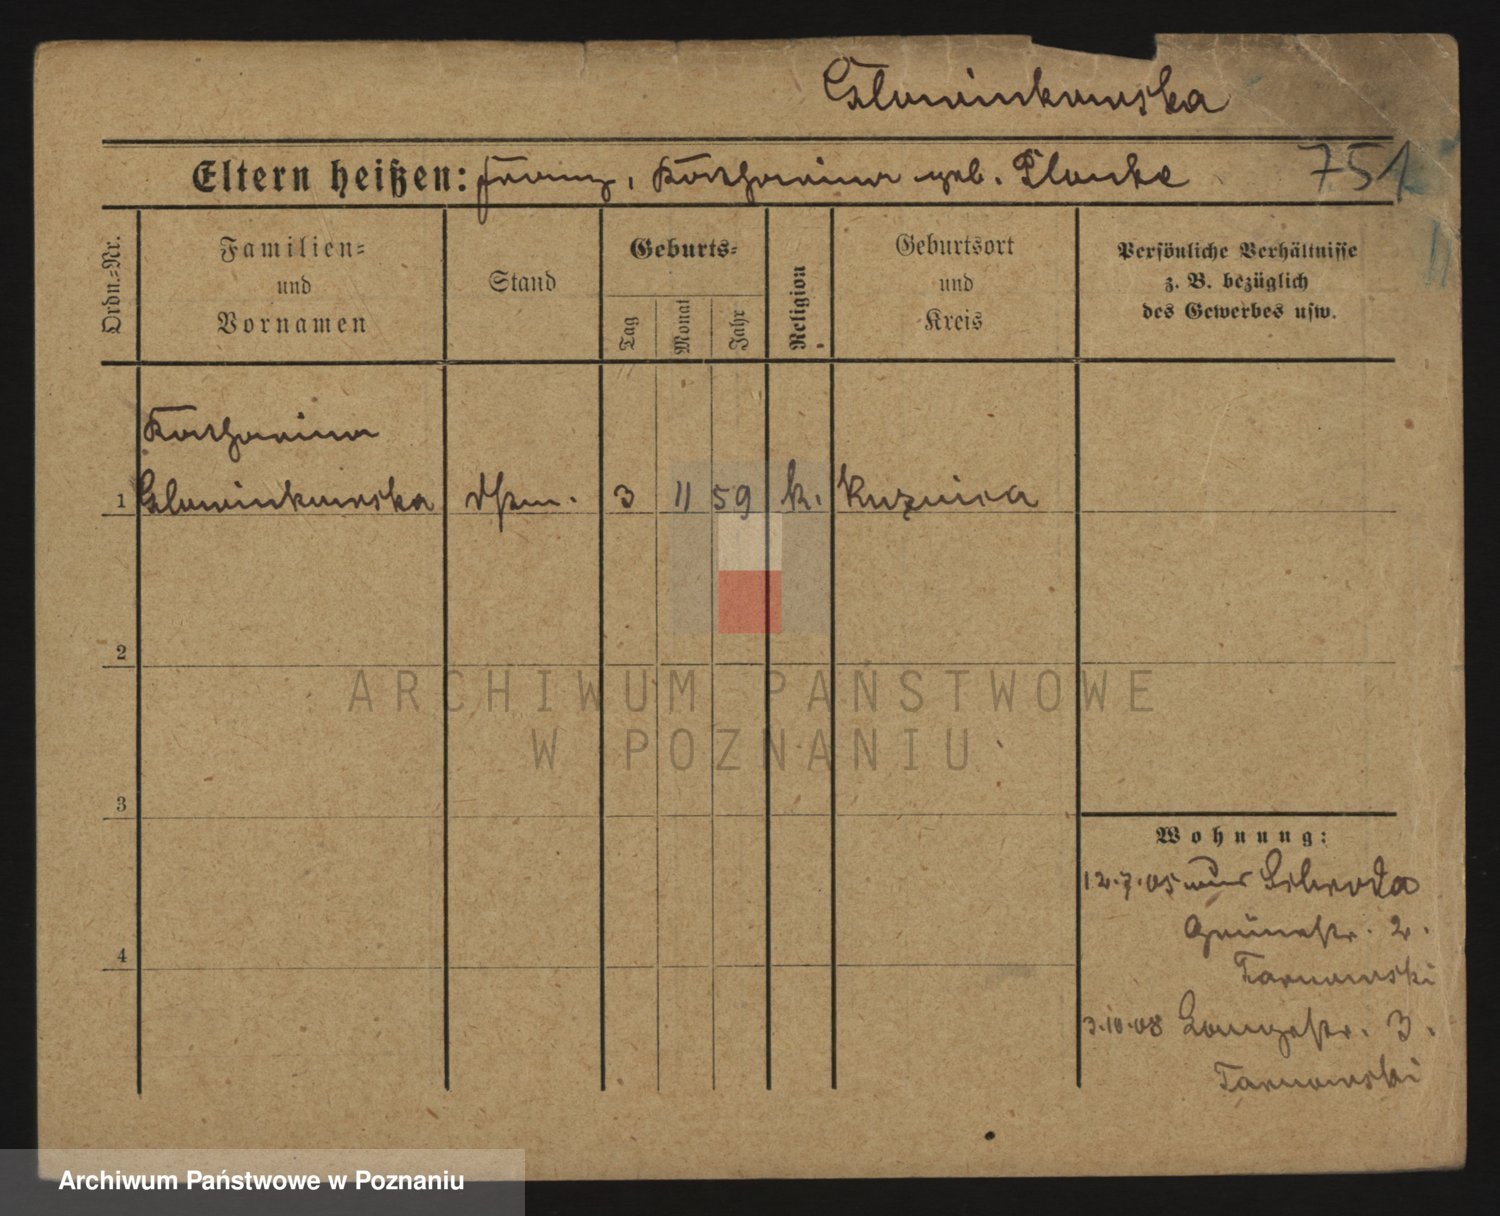 Glowinkowska
Eltern heißen: Franz, Katharina geb. Planke
751
Ordn.-Nr.
Familien-
und
Vornamen
Stand
Geburts-
Tag
Monat
Jahr
Religion
Geburtsort
und
Kreis
Persönliche Verhältnisse
z. B. bezüglich
des Gewerbes usw.
Katharina
1 Glowinkowska 3 11 59 k. Kuznica
2
3
4
Wohnung:
12.7.05 aus Schroda
Grünestr. 2.
Tarnowski
3.10.08 Langestr. 3.
Tarnowski
ARCHIWUM PAŃSTWOWE
W POZNANIU
Archiwum Państwowe w Poznaniu